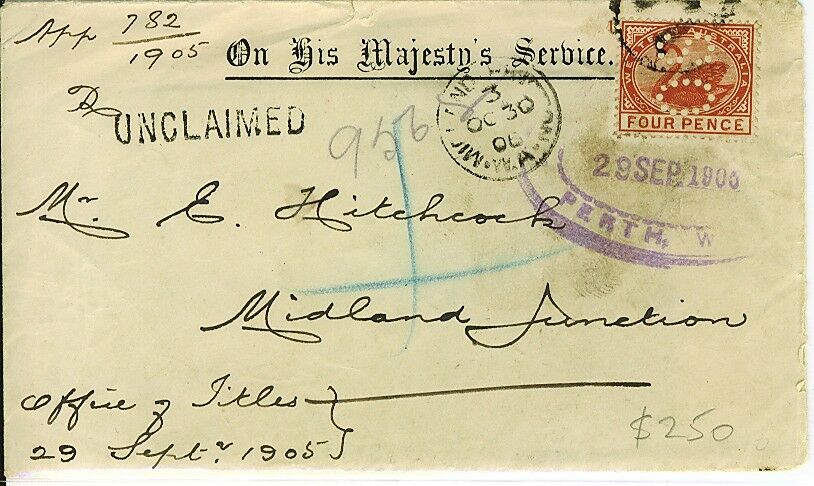 App 782
1905
On His Majesty's Service.
WESTERN AUSTRALIA
FOUR PENCE
UNCLAIMED
956
29 SEP. 1905
PERTH, W
Mr. E. Hitchcock
Midland Junction
Office of Titles
29 Septr 1905
$250